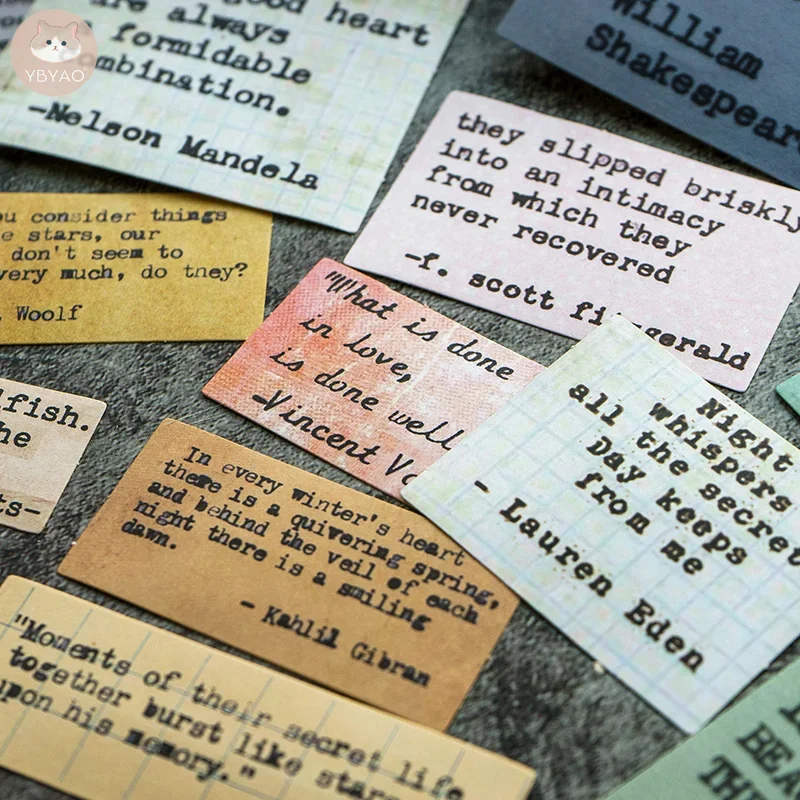 YBYAO
good heart
are always
formidable
mbination.
-Nelson Mandela
William
Shakespeare
they slipped briskly
into an intimacy
from which they
never recovered
-f. scott fitzgerald
ou consider things
e stars, our
don't seem to
very much, do they?
Woolf
"What is done
in love,
is done well
-Vincent Va
lfish.
he
ts-
Night
all whispers
the secret
Day keeps
from me
- Lauren Eden
In every winter's heart
there is a quivering spring,
and behind the veil of each
night there is a smiling
dawn.
- Kahlil Gibran
"Moments of their secret life
together burst like stars
upon his memory."
BEA
TH